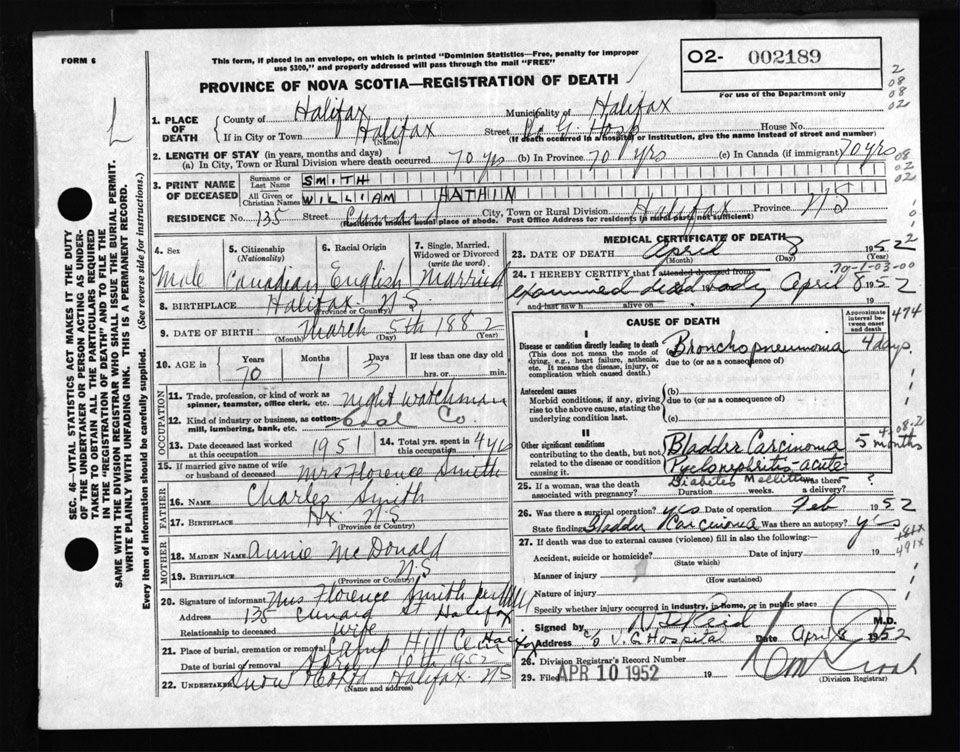 FORM 6
This form, if placed in an envelope, on which is printed "Dominion Statistics—Free, penalty for improper
use $300," and properly addressed will pass through the mail "FREE"
PROVINCE OF NOVA SCOTIA—REGISTRATION OF DEATH
02- 002189
For use of the Department only
2
08
08
02
1. PLACE OF DEATH
County of Halifax Municipality of Halifax
If in City or Town Halifax Street V. G. Hosp House No.
(Name) (If death occurred in a hospital or institution, give the name instead of street and number)
2. LENGTH OF STAY (in years, months and days)
(a) In City, Town or Rural Division where death occurred 70 yrs (b) In Province 70 yrs (c) In Canada (if immigrant) 70 yrs
08
02
02
3. PRINT NAME OF DECEASED
Surname or Last Name SMITH
All Given or Christian Names WILLIAM HATHIN
RESIDENCE No. 135 Street Cunard City, Town or Rural Division Halifax Province NS
(Residence means usual place of abode. Post Office Address for residents in rural parts not sufficient)
4. Sex Male
5. Citizenship (Nationality) Canadian
6. Racial Origin English
7. Single, Married, Widowed or Divorced (write the word) Married
8. BIRTHPLACE Halifax N.S.
(Province or Country)
9. DATE OF BIRTH March 5th 1882
(Month) (Day) (Year)
10. AGE in Years Months Days If less than one day old
70 1 3 hrs. or min.
OCCUPATION
11. Trade, profession, or kind of work as spinner, teamster, office clerk, etc. night watchman
12. Kind of industry or business, as cotton-mill, lumbering, bank, etc. Coal Co.
13. Date deceased last worked at this occupation 1951
14. Total yrs. spent in this occupation 44
15. If married give name of wife or husband of deceased Mrs Florence Smith
FATHER
16. NAME Charles Smith
17. BIRTHPLACE Hx. N.S
(Province or Country)
MOTHER
18. MAIDEN NAME Annie McDonald
19. BIRTHPLACE N S
(Province or Country)
20. Signature of informant Mrs Florence Smith
Address 135 Cunard St Halifax
Relationship to deceased wife
21. Place of burial, cremation or removal Camp Hill Cem Halifax
Date of burial or removal April 10th 1952
22. Undertaker Snow Halifax. NS
(Name and address)
MEDICAL CERTIFICATE OF DEATH
23. DATE OF DEATH April 8 1952
(Month) (Day)
24. I HEREBY CERTIFY that I attended deceased from
examined dead body April 8 1952
and last saw h alive on 19
70-1-03-00
CAUSE OF DEATH
Approximate interval between onset and death
474
I
Disease or condition directly leading to death
(This does not mean the mode of dying, e.g., heart failure, asthenia, etc. It means the disease, injury, or complication which caused death.)
(a) Bronchopneumonia 4 days
due to (or as a consequence of)
Antecedent causes
Morbid conditions, if any, giving rise to the above cause, stating the underlying condition last.
(b)
due to (or as a consequence of)
(c)
II
Other significant conditions
contributing to the death, but not related to the disease or condition
Bladder Carcinoma 5 months
Pyelonephritis-acute
Diabetes Mellitus ?
25. If a woman, was the death associated with pregnancy? Duration weeks. was there a delivery?
26. Was there a surgical operation? yes Date of operation Feb 1952
State findings Bladder Carcinoma Was there an autopsy? yes
27. If death was due to external causes (violence) fill in also the following:
Accident, suicide or homicide? Date of injury 19
(State which)
491x
Manner of injury
(How sustained)
Nature of injury
Specify whether injury occurred in industry, in home, or in public place
Signed by Reid M.D.
Address c/o V. G. Hospital Date April 8 1952
28. Division Registrar's Record Number
29. Filed APR 10 1952 19
(Division Registrar)
SEC. 46—VITAL STATISTICS ACT MAKES IT THE DUTY
OF THE UNDERTAKER OR PERSON ACTING AS UNDER-
TAKER TO OBTAIN ALL THE PARTICULARS REQUIRED
IN THE "REGISTRATION OF DEATH" AND TO FILE THE
SAME WITH THE DIVISION REGISTRAR WHO SHALL ISSUE THE BURIAL PERMIT.
WRITE PLAINLY WITH UNFADING INK. THIS IS A PERMANENT RECORD.
Every item of information should be carefully supplied. (See reverse side for instructions.)